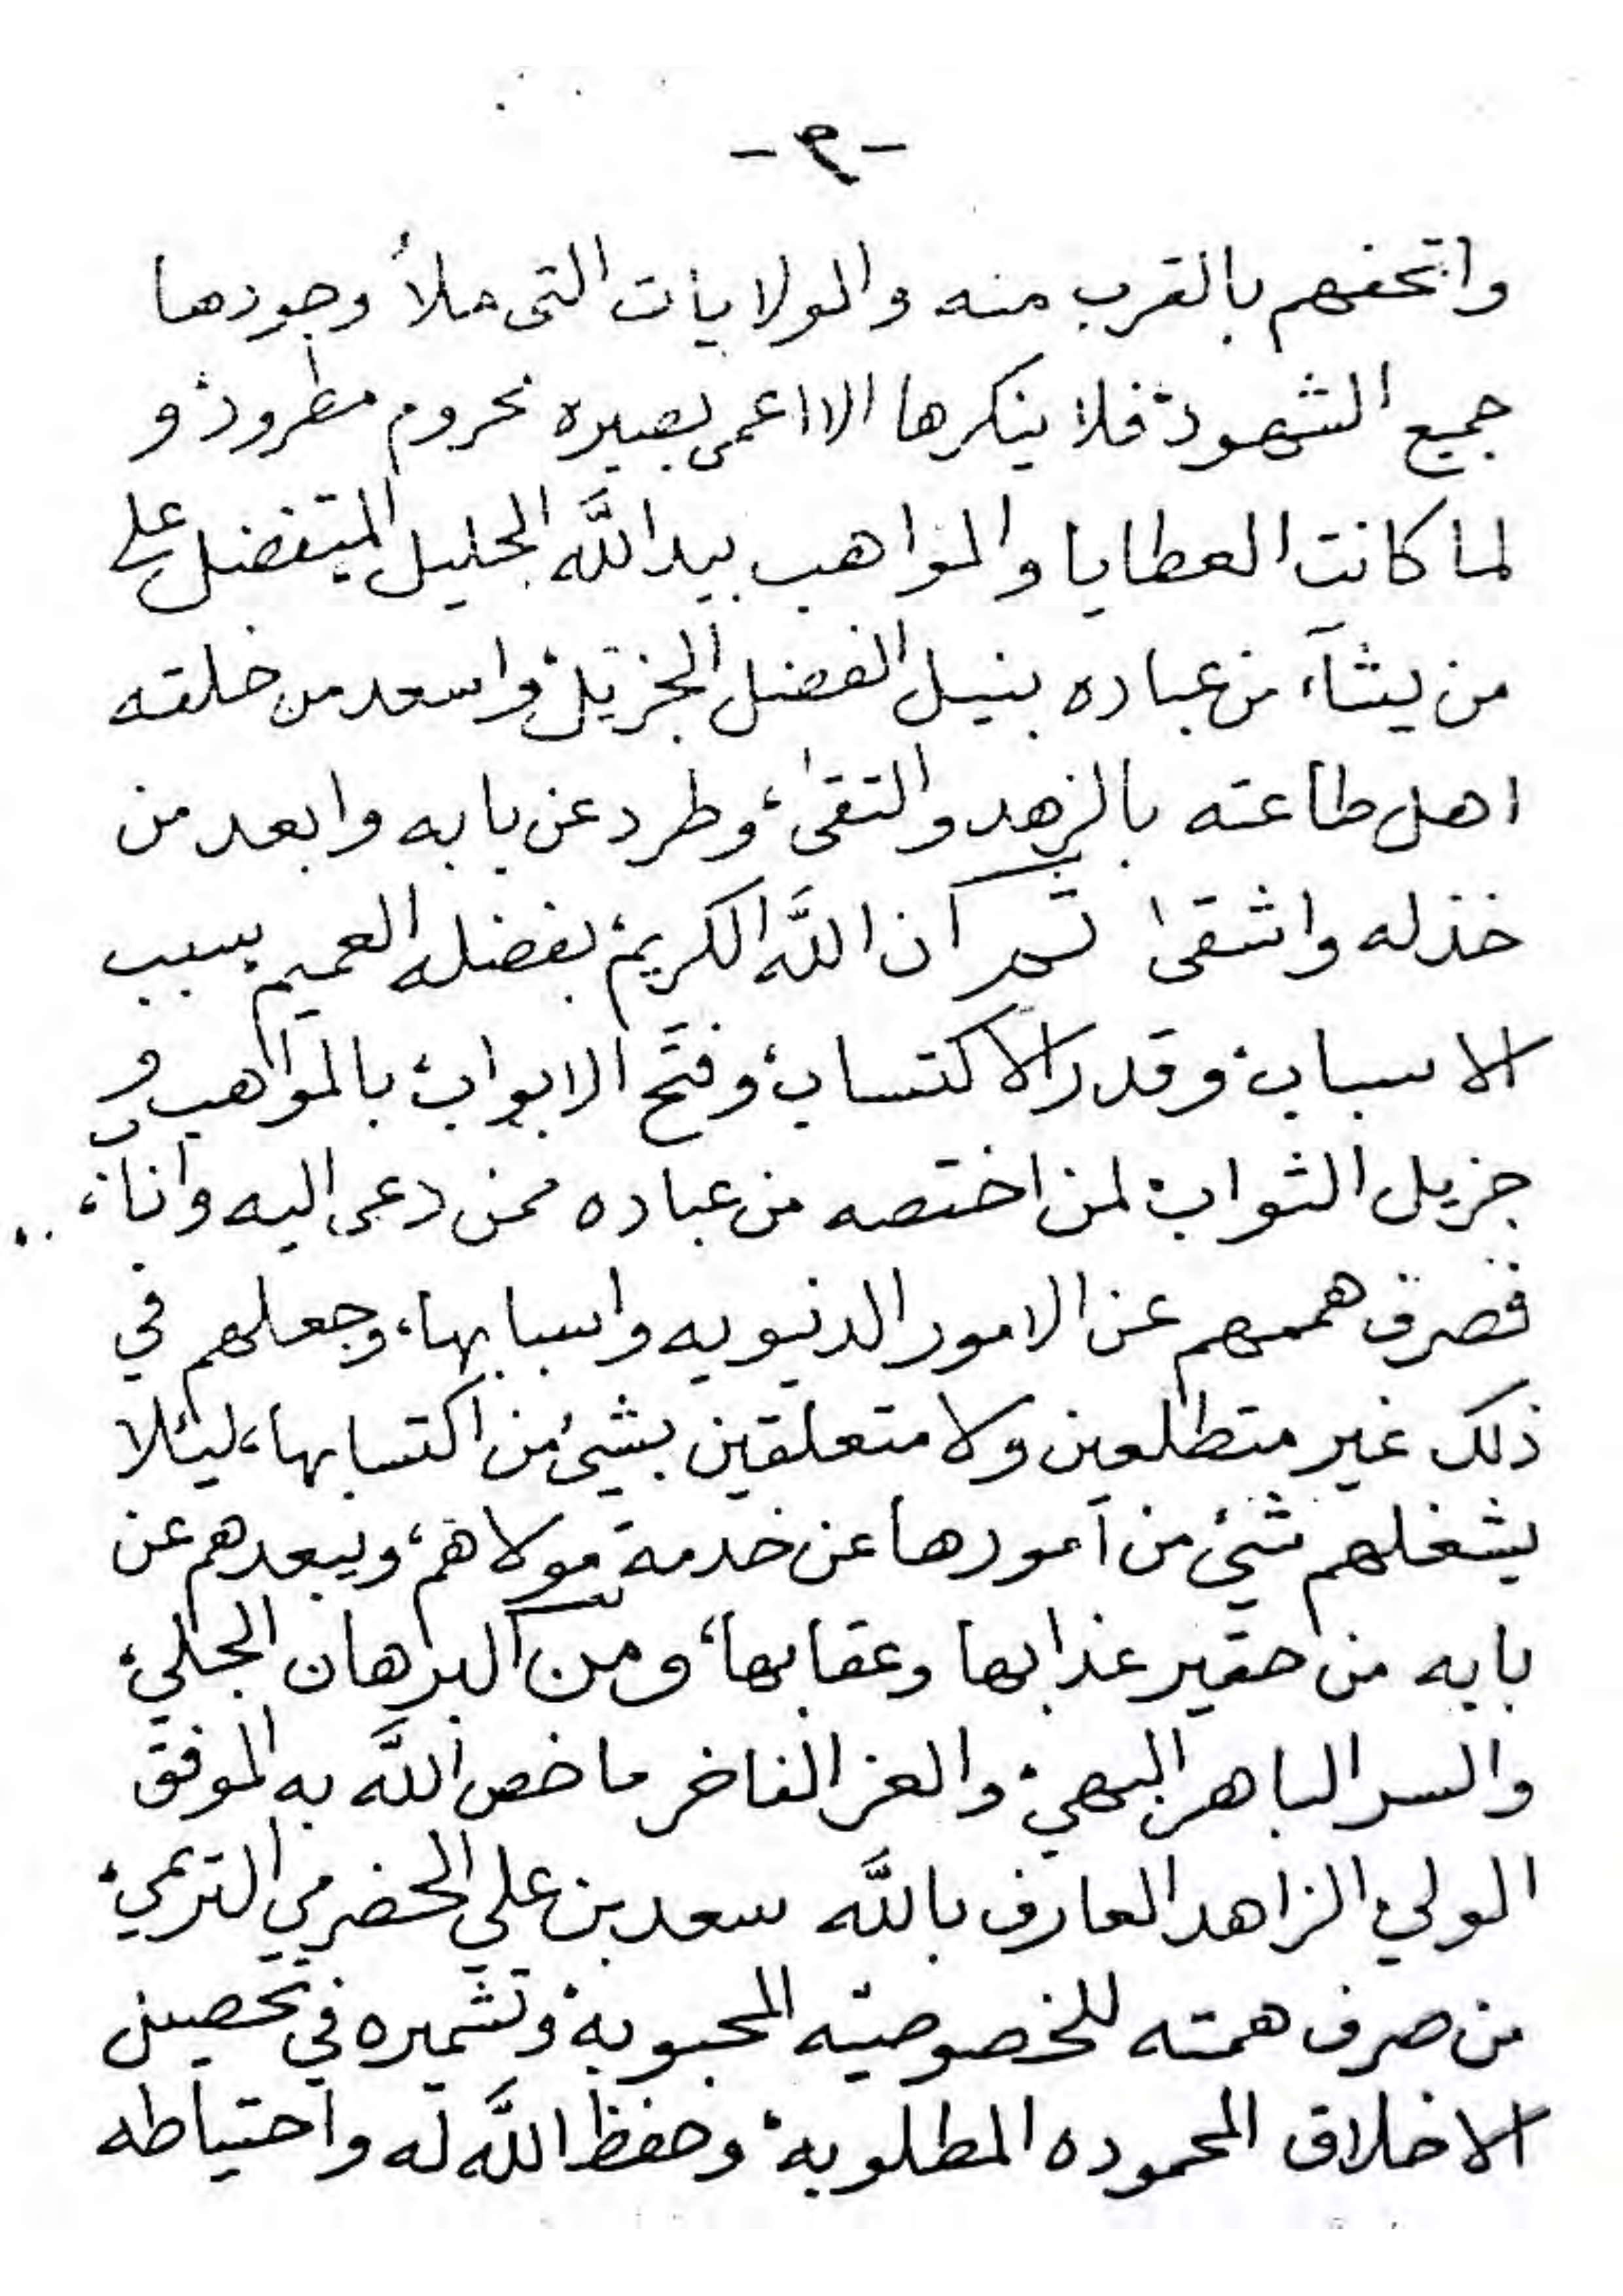 -٩-
واتحفهم بالقرب منه والولايات التى ملأ وجودها
جميع الشهود، فلا ينكرها الا اعمى بصيره محروم مطرود، و
لما كانت العطايا والمواهب بيد اللَّه الجليل المتفضل على
من يشآء من عباده بنيل الفضل الجزيل، واسعد من خلقه
اهل طاعته بالزهد والتقى، وطرد عن بابه وابعد من
خذله واشقى ان اللَّه الكريم، بفضله العميم سبب
الاسباب، وقدر الاكتساب، وفتح الابواب، بالمواهب و
جزيل الثواب، لمن اختصه من عباده ممن دعى اليه واناب،
فصرف هممهم عن الامور الدنيويه واسبابها، وجعلهم في
ذلك غير متطلعين ولا متعلقين بشىء من اكتسابها، ليئلا
يشغلهم شىء من أمورها عن خدمة مولاهم، ويبعدهم عن
بابه من حقير عذابها وعقابها، ومن البرهان الجلي،
والسر الباهر البهي، والعز الفاخر ما خص اللَّه به الموفق
الولي، الزاهد العارف باللَّه سعد بن علي الحضرمي التريمي،
من صرف همته للخصوصيّه المحبوبة، وتشميره في تحصيل
الاخلاق المحموده المطلوبه، وحفظ اللَّه له واحتياطه